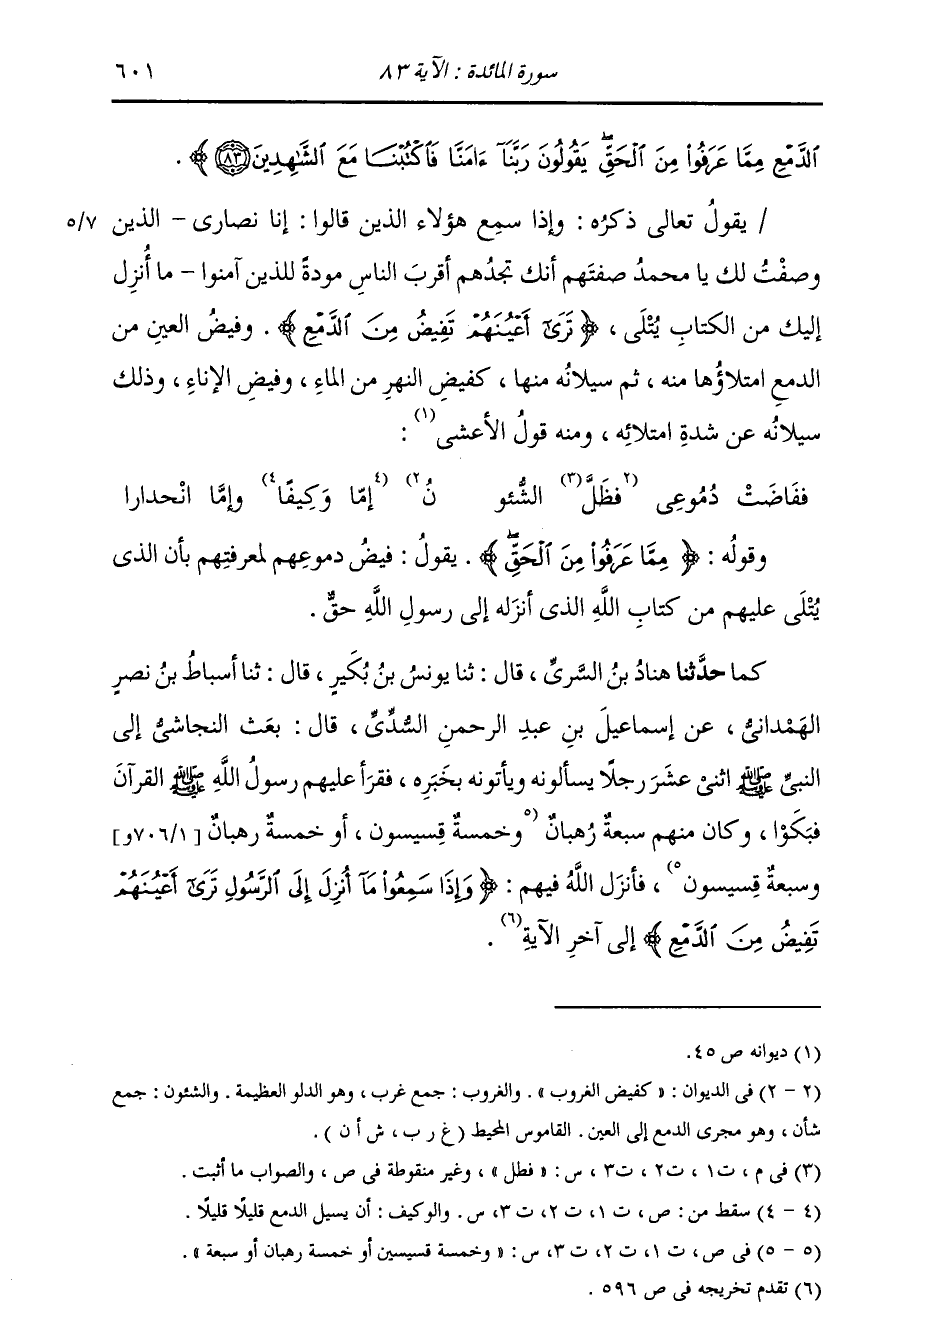 سورة المائدة : الآية ٨٣ ٦٠١
الدَّمْعِ مِمَّا عَرَفُوا۟ مِنَ الْحَقِّ ۖ يَقُولُونَ رَبَّنَآ ءَامَنَّا فَاكْتُبْنَا مَعَ الشَّٰهِدِينَ ﴿٨٣﴾ ﴾ .
/ يقولُ تعالى ذكرُه : وإذا سمِع هؤلاء الذين قالوا : إنا نصارى - الذين ٥/٧
وصفْتُ لك يا محمدُ صفتَهم أنك تجدُهم أقربَ الناسِ مودةً للذين آمنوا - ما أُنزِل
إليك من الكتابِ يُتْلَى ، ﴿ تَرَىٰٓ أَعْيُنَهُمْ تَفِيضُ مِنَ الدَّمْعِ ﴾ . وفيضُ العينِ من
الدمعِ امتلاؤُها منه ، ثم سيلانُه منها ، كفيضِ النهرِ من الماءِ ، وفيضِ الإناءِ ، وذلك
سيلانُه عن شدةِ امتلائِه ، ومنه قولُ الأعشى(١) :
ففَاضَتْ دُمُوعِى (٢فظَلَّ(٣) الشُّئو نُ٢) (٤إمّا وَكِيفًا٤) وإمَّا انْحدارا
وقولُه : ﴿ مِمَّا عَرَفُوا۟ مِنَ الْحَقِّ ۖ ﴾ . يقولُ : فيضُ دموعِهم لمعرفتِهم بأن الذى
يُتْلَى عليهم من كتابِ اللَّهِ الذى أنزَله إلى رسولِ اللَّهِ حقٌّ .
كما حدَّثنا هنادُ بنُ السَّرىِّ ، قال : ثنا يونسُ بنُ بُكَيرٍ ، قال : ثنا أسباطُ بنُ نصرٍ
الهَمْدانىُّ ، عن إسماعيلَ بنِ عبدِ الرحمنِ السُّدِّىِّ ، قال : بعَث النجاشىُّ إلى
النبىِّ ﷺ اثنىْ عشَرَ رجلًا يسألونه ويأتونه بخَبَرِه ، فقرَأ عليهم رسولُ اللَّهِ ﷺ القرآنَ
فبَكَوْا ، وكان منهم سبعةُ رُهبانٌ (٥وخمسةٌ قِسيسون ، أو خمسةٌ رهبانٌ [٧٠٦/١و]
وسبعةٌ قِسيسون٥) ، فأنزَل اللَّهُ فيهم : ﴿ وَإِذَا سَمِعُوا۟ مَآ أُنزِلَ إِلَى الرَّسُولِ تَرَىٰٓ أَعْيُنَهُمْ
تَفِيضُ مِنَ الدَّمْعِ ﴾ إلى آخرِ الآيةِ(٦) .
(١) ديوانه ص ٤٥.
(٢ - ٢) فى الديوان : « كفيض الغروب » . والغروب : جمع غرب ، وهو الدلو العظيمة . والشئون : جمع
شأن ، وهو مجرى الدمع إلى العين . القاموس المحيط ( غ ر ب ، ش أ ن ) .
(٣) فى م ، ت١ ، ت٢ ، ت٣ ، س : « فطل » ، وغير منقوطة فى ص ، والصواب ما أثبت .
(٤ - ٤) سقط من : ص ، ت ١، ت ٢، ت ٣، س . والوكيف : أن يسيل الدمع قليلًا قليلًا .
(٥ - ٥) فى ص ، ت ١، ت ٢، ت ٣، س : « وخمسة قسيسين أو خمسة رهبان أو سبعة » .
(٦) تقدم تخريجه فى ص ٥٩٦ .